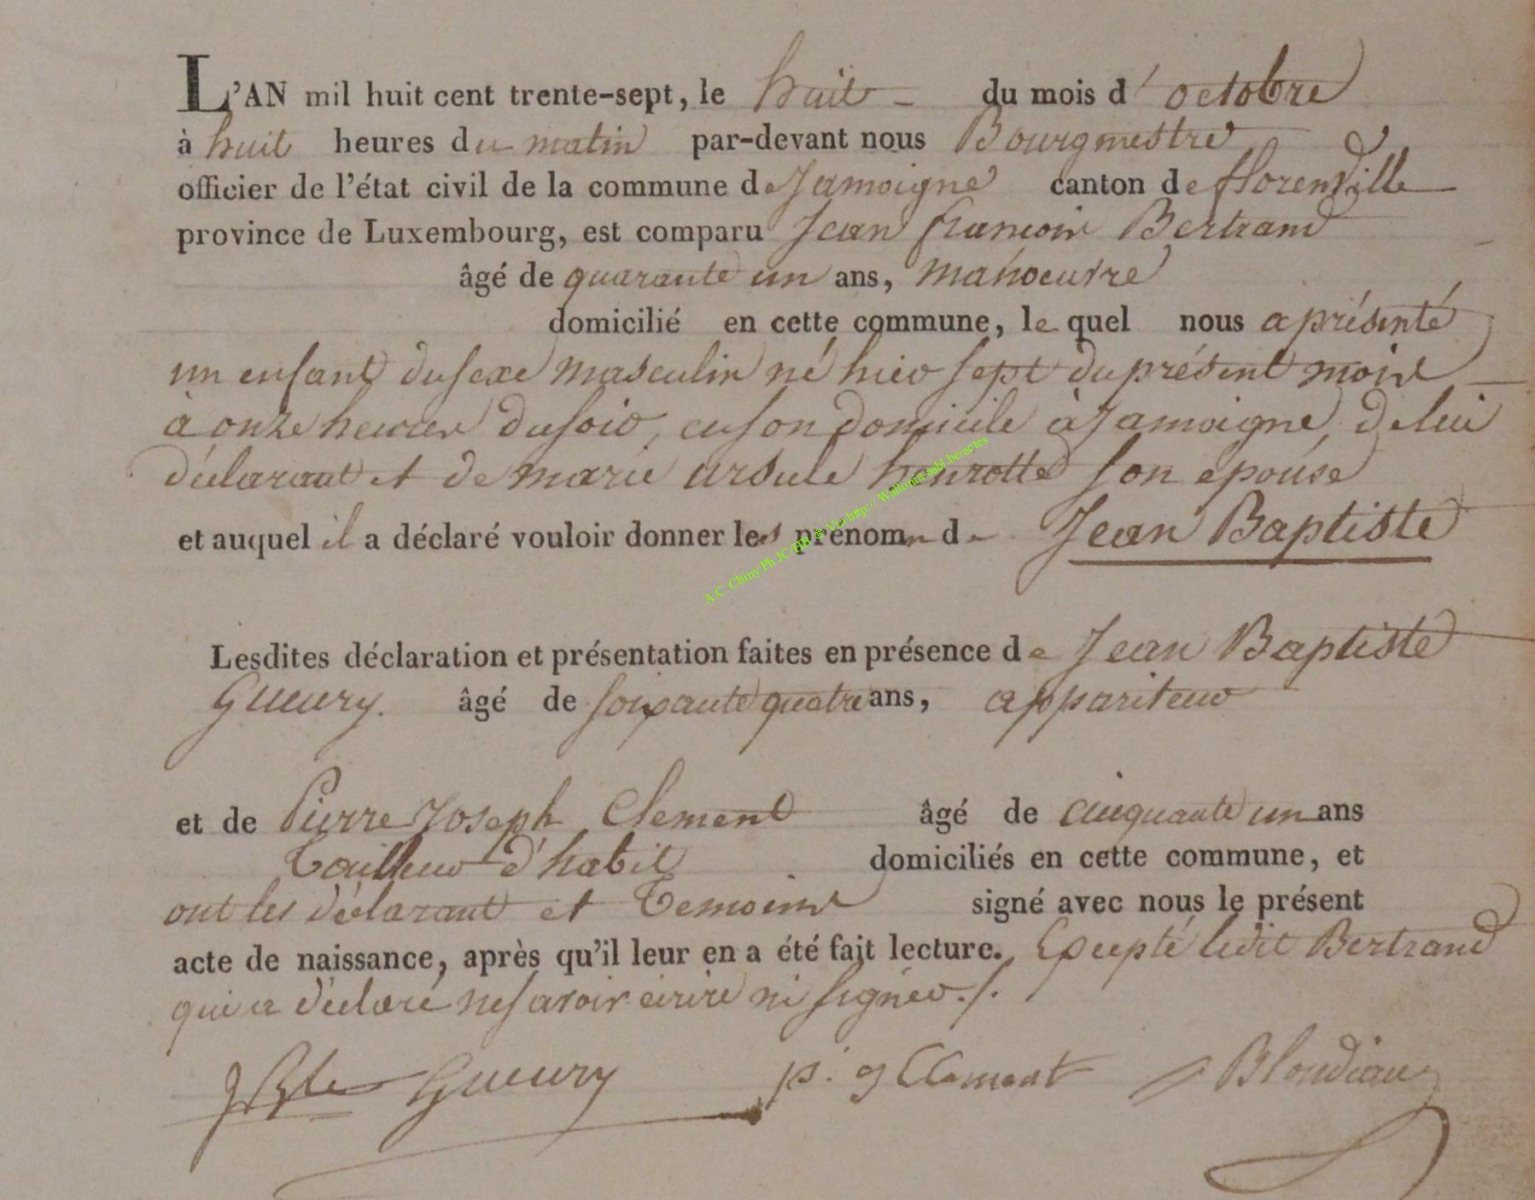 L'AN mil huit cent trente-sept, le huit du mois d'octobre
à huit heures du matin par-devant nous Bourgmestre
officier de l'état civil de la commune de Jamoigne canton de florenville
province de Luxembourg, est comparu Jean françois Bertrand
âgé de quarante un ans, manoeuvre
domicilié en cette commune, le quel nous a présenté
un enfant du sexe masculin né hier sept du présent mois
à onze heures du soir, en son domicile à Jamoigne, de lui
déclarant et de marie ursule henrotte son epouse
et auquel il a déclaré vouloir donner les prénoms de Jean Baptiste
Lesdites déclaration et présentation faites en présence de Jean Baptiste
Gueury. âgé de soixante quatre ans, appariteur
et de Pierre Joseph Clement âgé de cinquante un ans
Tailleur d'habit domiciliés en cette commune, et
ont les déclarant et Temoins signé avec nous le présent
acte de naissance, après qu'il leur en a été fait lecture. Excepté ledit Bertrand
qui a déclaré ne savoir écrire ni signer./.
JBte Gueury p. j Clement Blondiau
A.C. Chiny Ph JC